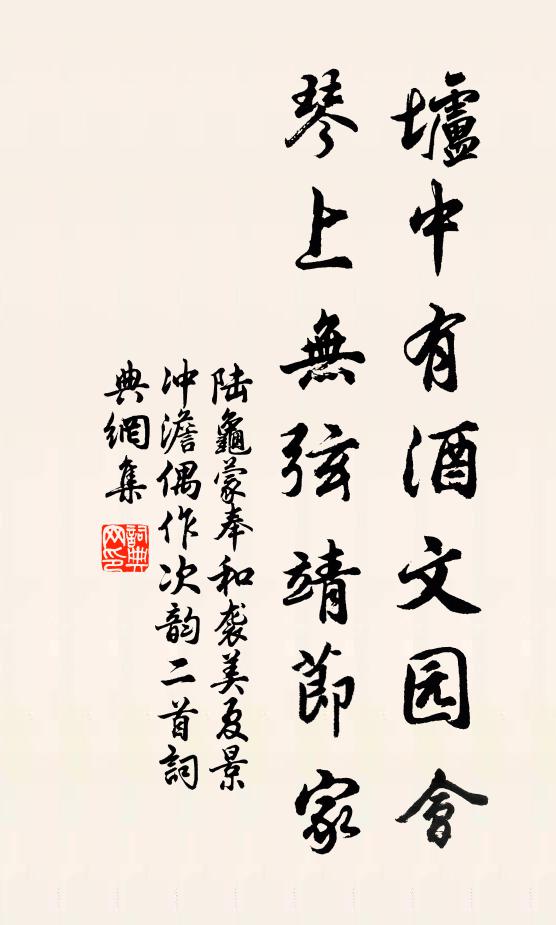 壚中有酒文园會
琴上無弦靖節家
陆龜蒙奉和袭美夏景
冲澹偶作次韵二首詞
典網集
詞典
网印